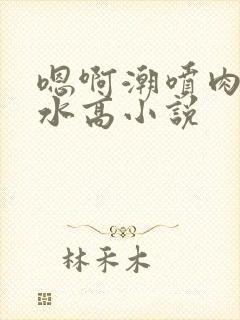 嗯啊潮喷肉
水高小説
林禾木